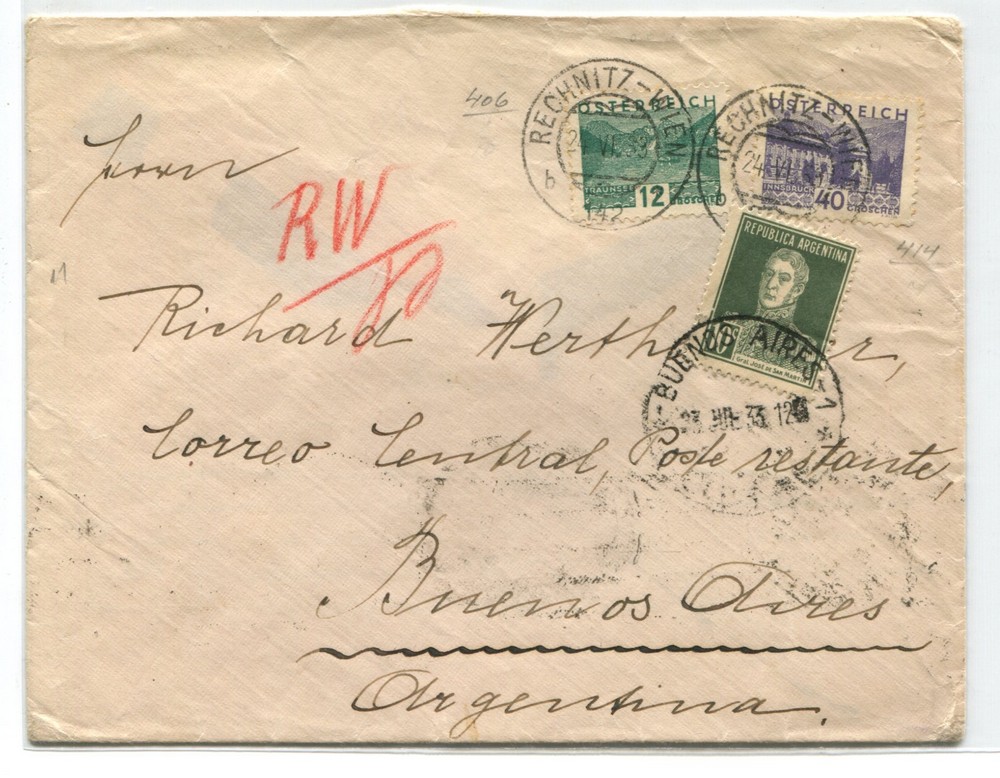 406
RECHNITZ-WIEN
24.VI.33
b
142
ÖSTERREICH
TRAUNSEE
12
GROSCHEN
RECHNITZ-WIEN
24.VI.33
ÖSTERREICH
INNSBRUCK
40
GROSCHEN
414
Herrn
RW
REPUBLICA ARGENTINA
GRAL. JOSÉ DE SAN MARTIN
Richard
BUENOS AIRES-1
JUL 33 12
Correo Central, Poste restante,
Buenos Aires
Argentina.